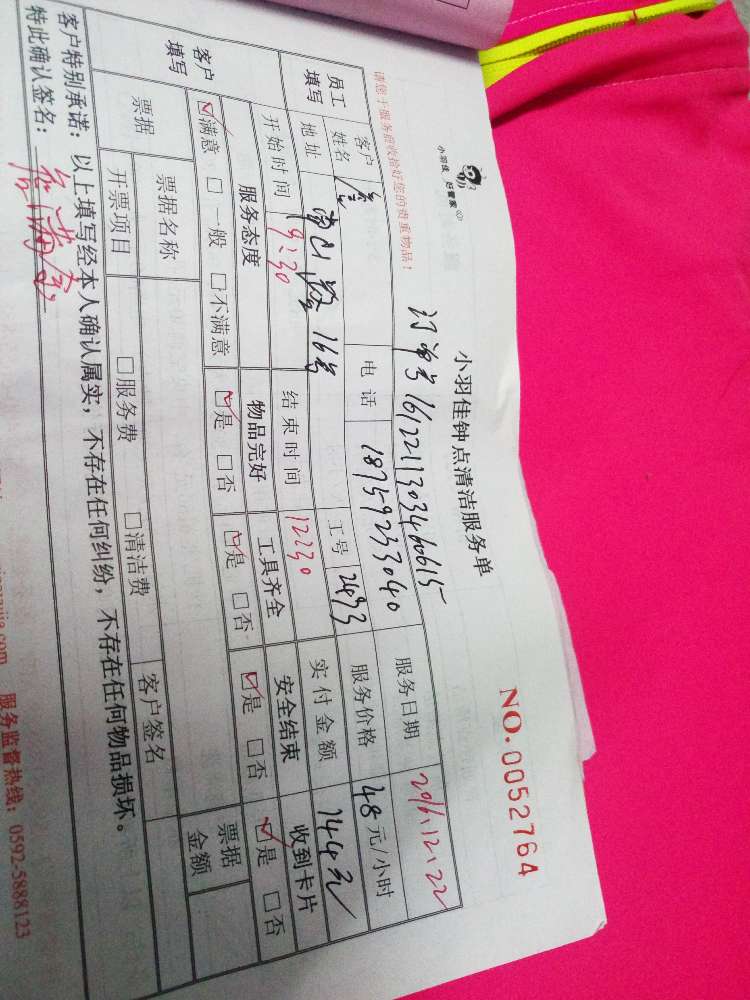 小羽佳 好管家
小羽佳钟点清洁服务单
NO.0052764
请您于服务前收拾好您的贵重物品！
订单号16122113034660615
服务日期 2016.12.22
员工填写
客户姓名 詹
电话 18759233040
服务价格 48元/小时
地址 16号
工号 2493
实付金额 144元
开始时间 9:30
结束时间 12:30
客户填写
服务态度 物品完好 工具齐全 安全结束 收到卡片
☑满意 □一般 □不满意 ☑是 □否 ☑是 □否 ☑是 □否 ☑是 □否
票据
票据名称
客户签名
票据金额
开票项目 □服务费 □清洁费
客户特别承诺：以上填写经本人确认属实，不存在任何纠纷，不存在任何物品损坏。
特此确认签名：
服务监督热线：0592-5888123